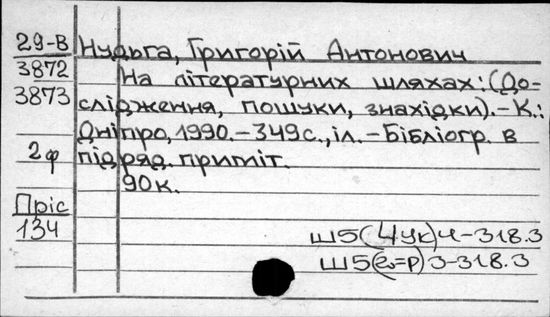 29-В Нудьга, Григорій Антонович
3872 На літературних шляхах: (До-
3873 слідження, пошуки, знахідки).-К.:
Дніпро, 1990.-349с., іл.-Бібліогр. в
2ф підряд. приміт.
90к.
Пріс
134
Ш5(4Ук)4-318.3
Ш5( =р)3-318.3